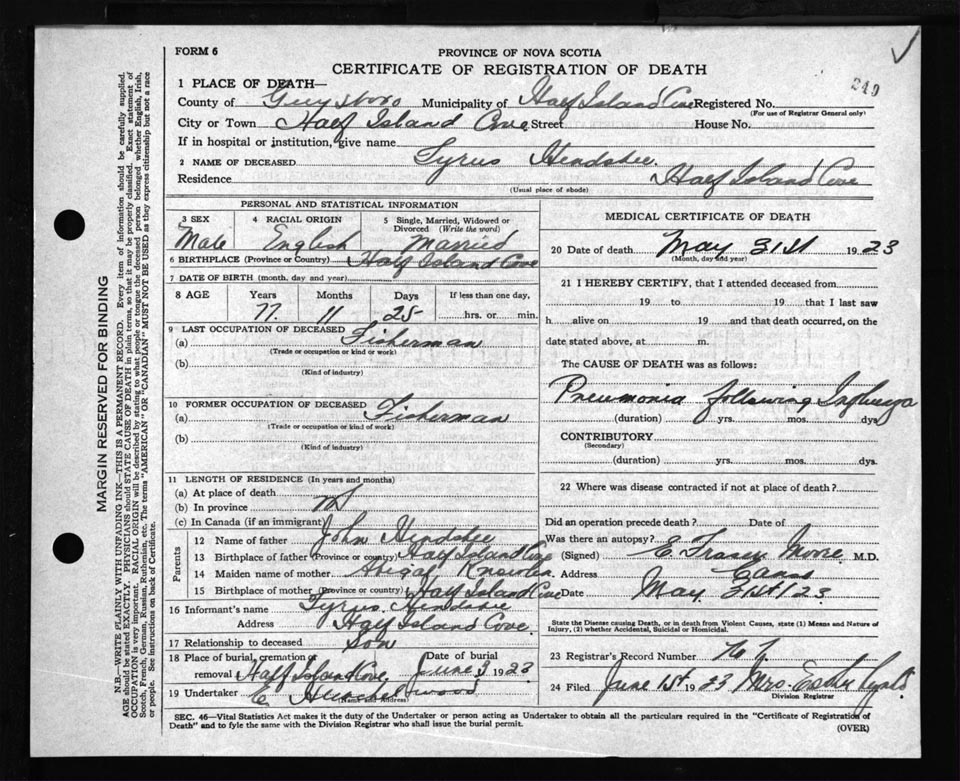 FORM 6
PROVINCE OF NOVA SCOTIA
CERTIFICATE OF REGISTRATION OF DEATH
249
1 PLACE OF DEATH—
County of Guysboro Municipality of Half Island Cove Registered No.
(For use of Registrar General only)
City or Town Half Island Cove Street House No.
If in hospital or institution, give name
2 NAME OF DECEASED Tyrus Hendsbee
Residence Half Island Cove
(Usual place of abode)
PERSONAL AND STATISTICAL INFORMATION
3 SEX
Male
4 RACIAL ORIGIN
English
5 Single, Married, Widowed or Divorced (Write the word)
Married
6 BIRTHPLACE (Province or Country) Half Island Cove
7 DATE OF BIRTH (month, day and year)
8 AGE Years Months Days If less than one day,
77 11 25 hrs. or min.
9 LAST OCCUPATION OF DECEASED
(a) Fisherman
(Trade or occupation or kind or work)
(b)
(Kind of industry)
10 FORMER OCCUPATION OF DECEASED
(a) Fisherman
(Trade or occupation or kind of work)
(b)
(Kind of industry)
11 LENGTH OF RESIDENCE (In years and months)
(a) At place of death
(b) In province
(c) In Canada (if an immigrant)
Parents
12 Name of father John Hendsbee
13 Birthplace of father (Province or country) Half Island Cove
14 Maiden name of mother Abigal
15 Birthplace of mother (Province or country) Half Island Cove
16 Informant's name Tyrus Hendsbee
Address Half Island Cove
17 Relationship to deceased Son
18 Place of burial, cremation or removal Half Island Cove Date of burial June 3 1923
19 Undertaker E
(Name and Address)
MEDICAL CERTIFICATE OF DEATH
20 Date of death May 31st 1923
(Month, day and year)
21 I HEREBY CERTIFY, that I attended deceased from
19 to 19 that I last saw
h alive on 19 and that death occurred, on the
date stated above, at m.
The CAUSE OF DEATH was as follows:
Pneumonia following Influenza
(duration) yrs. mos. dys.
CONTRIBUTORY
(Secondary)
(duration) yrs. mos. dys.
22 Where was disease contracted if not at place of death?
Did an operation precede death? Date of
Was there an autopsy?
(Signed) E. Fraser Moore M.D.
Address Canso
Date May 31st/23
State the Disease causing Death, or in death from Violent Causes, state (1) Means and Nature of
Injury, (2) whether Accidental, Suicidal or Homicidal.
23 Registrar's Record Number
24 Filed June 1st 1923 Mrs. Esther
Division Registrar
SEC. 46—Vital Statistics Act makes it the duty of the Undertaker or person acting as Undertaker to obtain all the particulars required in the "Certificate of Registration of
Death" and to fyle the same with the Division Registrar who shall issue the burial permit.
(OVER)
MARGIN RESERVED FOR BINDING
N.B.—WRITE PLAINLY WITH UNFADING INK—THIS IS A PERMANENT RECORD. Every item of information should be carefully supplied.
AGE should be stated EXACTLY. PHYSICIANS should STATE CAUSE OF DEATH in plain terms, so that it may be properly classified. Exact statement of
OCCUPATION is very important. RACIAL ORIGIN will be described by stating to what people or tongue the deceased person belonged whether English, Irish,
Scotch, French, German, Russian, Ruthenian, etc. The terms "AMERICAN" OR "CANADIAN" MUST NOT BE USED as they express citizenship but not a race
or people. See instructions on back of Certificate.